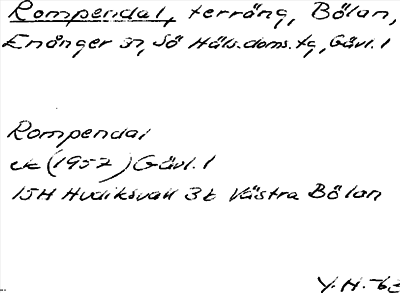 Rompendal, terräng, Bölan,
Enånger sn, Sö Häls.doms.tg, Gävl.l
Rompendal
ek (1957) Gävl.l
15H Hudiksvall 3b Västra Bölan
Y.H.-63